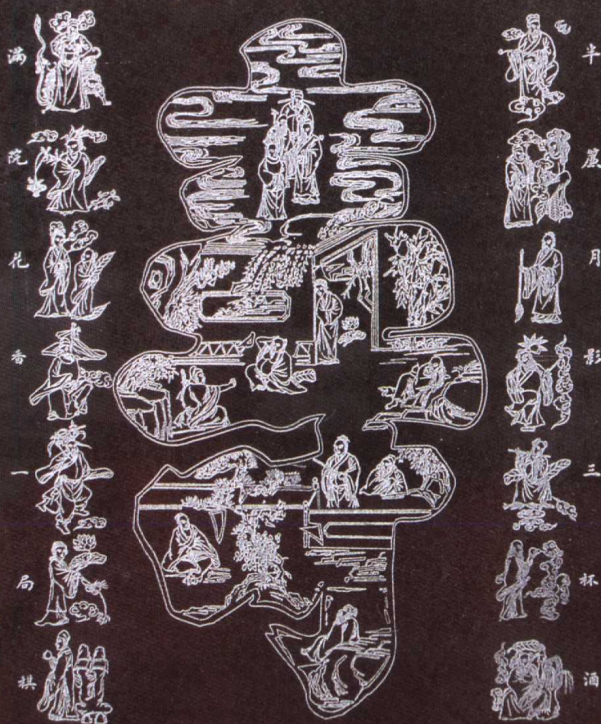 半簾月影三杯酒
满院花香一局棋